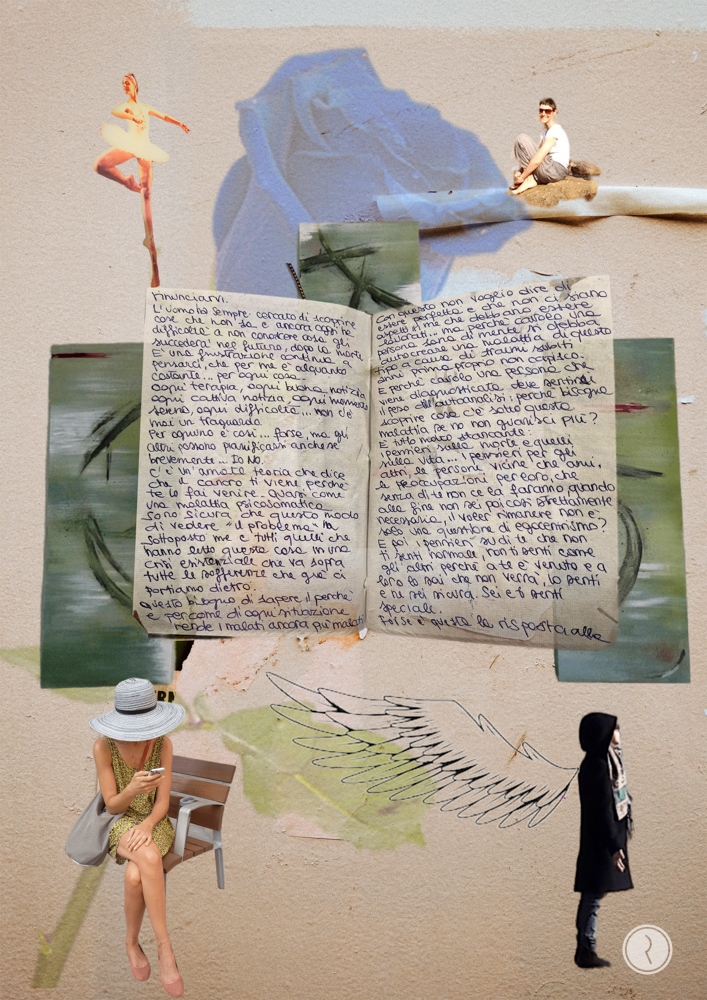 rinunciarvi.
L'uomo ha sempre cercato di scoprire
cose che non sa e ancora oggi ha
difficoltà a non conoscere cosa gli
succederà nel futuro, dopo la morte
E' una frustrazione continua a
pensarci, che per me è alquanto
costante... per ogni cosa.
Ogni terapia, ogni buona notizia
ogni cattiva notizia, ogni momento
sereno, ogni difficoltà... non c'è
mai un traguardo.
Per ognuno è così... forse, ma gli
altri possono pianificarsi anche se
brevemente... Io No.
C'è un' amate teoria che dice
che il cancro ti viene perché
te lo fai venire. Quasi come
una malattia psicosomatica
Sono sicura che questo modo
di vedere "il problema" ha
sottoposto me e tutti quelli che
hanno letto questa cosa in una
crisi esistenziale che va sopra
tutte le sofferenze che già ci
portiamo dietro.
Questo bisogno di sapere il perché
e percome di ogni situazione
rende i malati ancora più malati
Con questo non voglio dire di
essere perfetta e che non ci siano
aspetti di me che debbano essere
lavorati; ma perché cavolo una
persona sana di mente si debba
autocreare una malattia di questo
tipo a causa di traumi subiti
anni prima proprio non capisco.
E perché cavolo una persona che
viene diagnosticata deve sentirsi
il peso dell'autoanalisi; perché bisogna
scoprire cosa c'è sotto questa
malattia se no non guarisci più?
È tutto molto stancante:
i pensieri sulla morte e quelli
sulla vita... i pensieri per gli
altri, le persone vicine che ami,
le preoccupazioni per loro, che
senza di te non ce la faranno quando
alla fine non sei poi così strettamente
necessaria, il voler rimanere non è
solo una questione di egocentrismo?
E poi i pensieri su di te che non
ti senti normale, non ti senti come
gli altri perché a te è venuto e a
loro lo sai che non verrà, lo senti
e ne sei sicura. Sei e ti senti
speciale.
Forse è questa la risposta alla
R